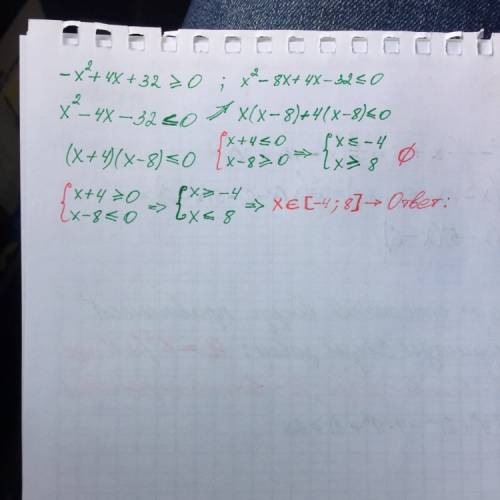 -x²+4x+32 ≥ 0 ; x²-8x+4x-32 ≤ 0
x²-4x-32 ≤ 0 ⇗ x(x-8)+4(x-8) ≤ 0
(x+4)(x-8) ≤ 0 { x+4 ≤ 0 x-8 ≥ 0 ⇒ { x ≤ -4 x ≥ 8 ∅
{ x+4 ≥ 0 x-8 ≤ 0 ⇒ { x ≥ -4 x ≤ 8 ⇒ x ∈ [-4; 8] → Ответ: